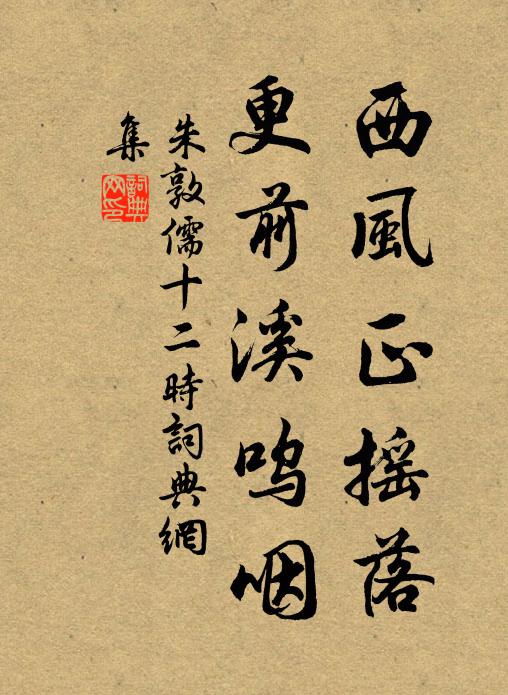 西風正搖落
更前溪嗚咽
朱敦儒十二時詞典網
集
詞典網印